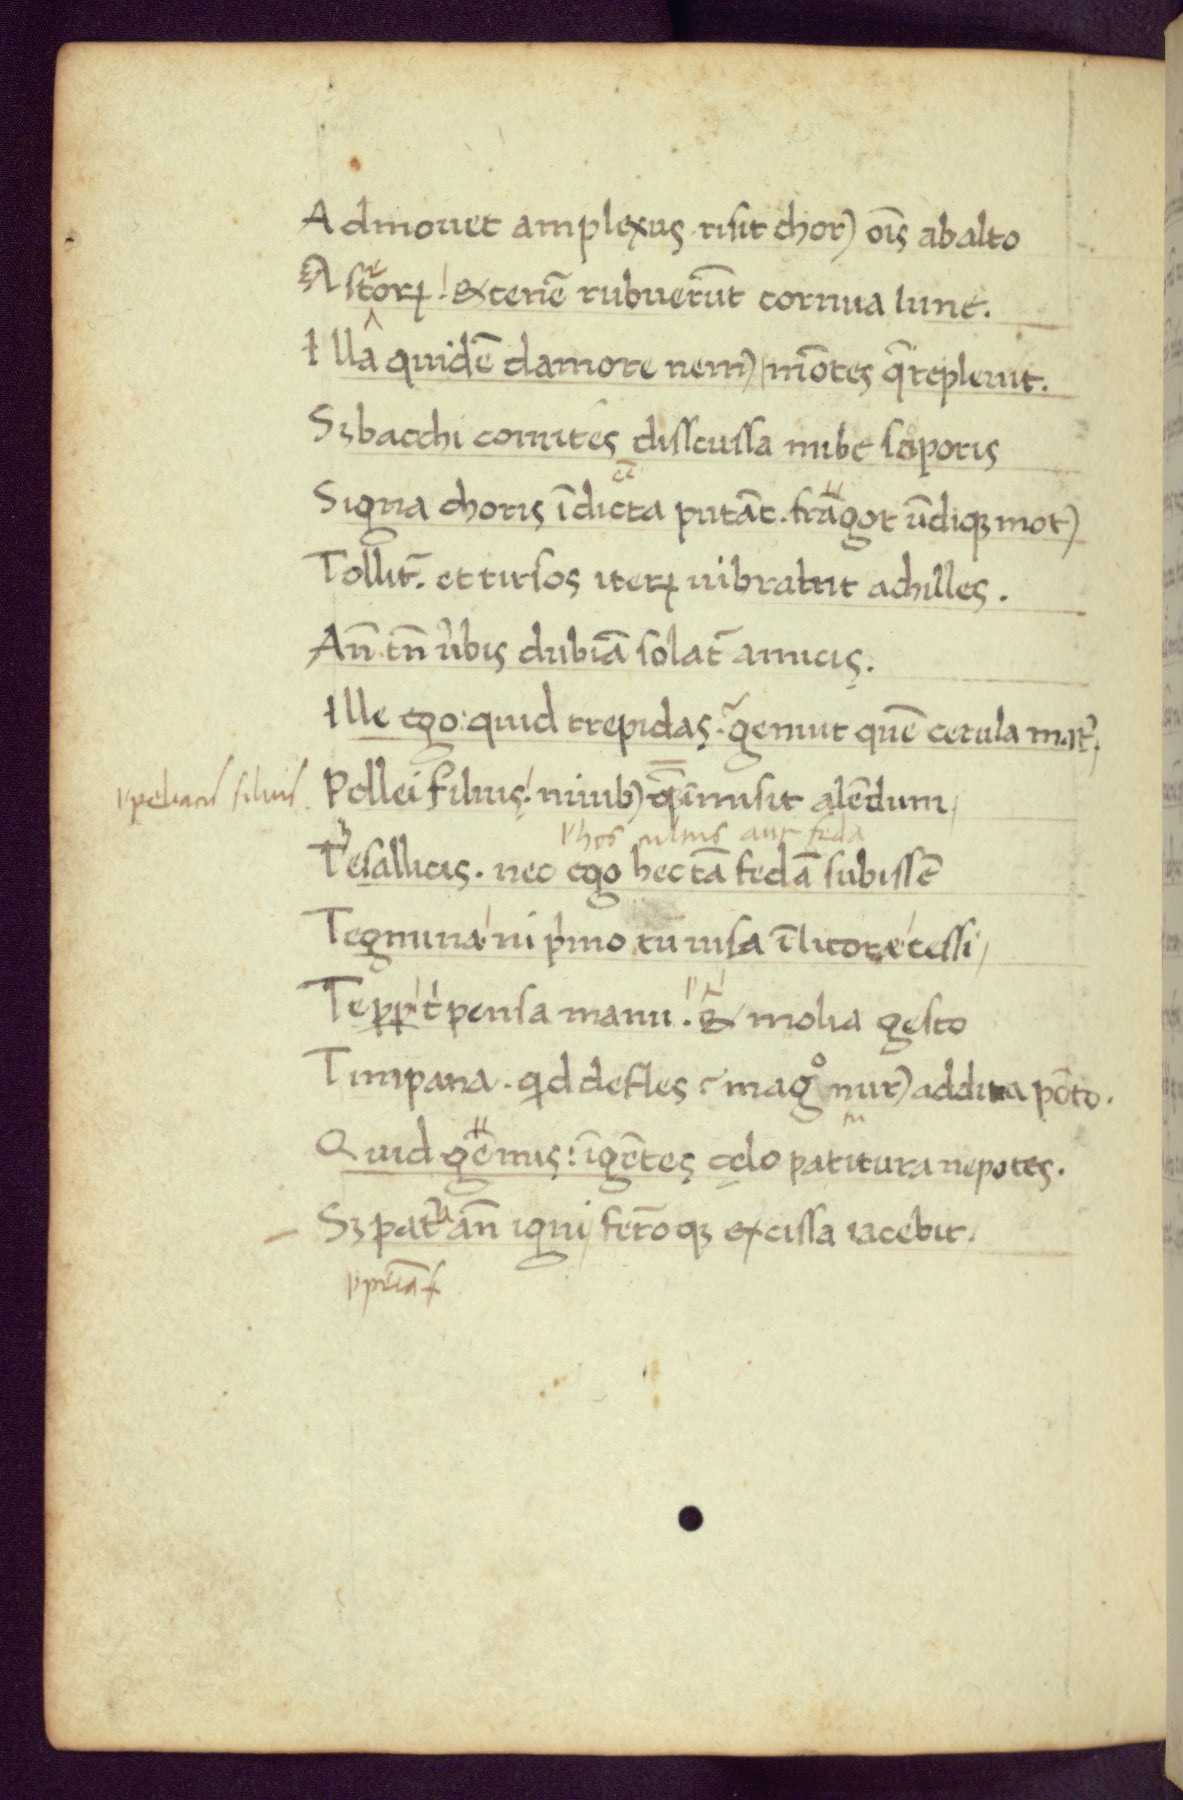 Admouet amplexus risit chor) oı̄s abalto
Astrorꝝ ! & tenē̄ rubuerūt cornua lune.
Illa quidē clamore nem) / mōtes q̄ repleuit.
Sꝫ bacchi comites disscussa nube soporis
Signa choris ı̄dicta putāt. frāgor ūdiqꝫ mot)
Tollit̄. et tirsos iterꝝ uibrauit achilles.
An̄. tn̄ u̓bis dubiā solat̄ amicis.
Ille ego: quid trepidas. genuit quē cerula mat͛,
peliacis siluis
Pollei filius! niuib) q̄ı̄misit alēdum /
uł hos cultus aut feda
Tħesallicis. nec ego hec tā fedā subissē
Tegmina! ni pı̍mo tu uisa ı̄ litore! cessi /
Te pp̱! t̍ pensa manu. & molia gesto
Timpana. qd defles : mag̊ nur) addita pōto.
Quid gēmis: ı̄gētes celo paritura nepotes.
Sꝫ pat̍. an̄ igni / ferōqꝫ excissa iacebit.